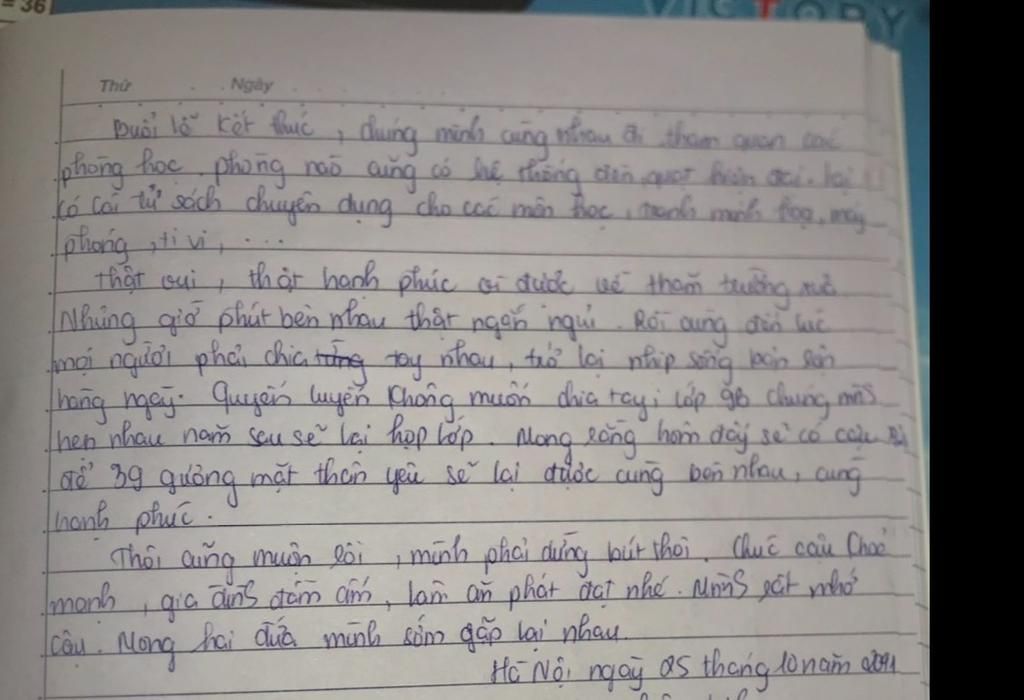 = 36
VICTORY
Thứ Ngày
Buổi lễ kết thúc, chúng mình cùng nhau đi tham quan các
phòng học. phòng nào cũng có hệ thống đèn, quạt hiện đại. lại
có cái tủ sách chuyên dụng cho các môn học, tranh minh họa, máy
phóng, ti vi, ...
Thật vui, thật hạnh phúc vì được về thăm trường xưa
Những giờ phút bên nhau thật ngắn ngủi. Rồi cũng đến lúc
mọi người phải chia tay nhau, trở lại nhịp sống bận bận
hàng ngày. Quyến luyến không muốn chia tay, lớp 9B chúng mình
hẹn nhau năm sau sẽ lại họp lớp. Mong rằng hôm đấy sẽ có cậu
để 39 gương mặt thân yêu sẽ lại được cùng bên nhau, cùng
hạnh phúc.
Thôi cũng muộn rồi, mình phải dừng bút thôi. Chúc cậu khoẻ
mạnh, gia đình đầm ấm, làm ăn phát đạt nhé. Mình rất nhớ
cậu. Mong hai đứa mình sớm gặp lại nhau.
Hà Nội, ngày 25 tháng 10 năm